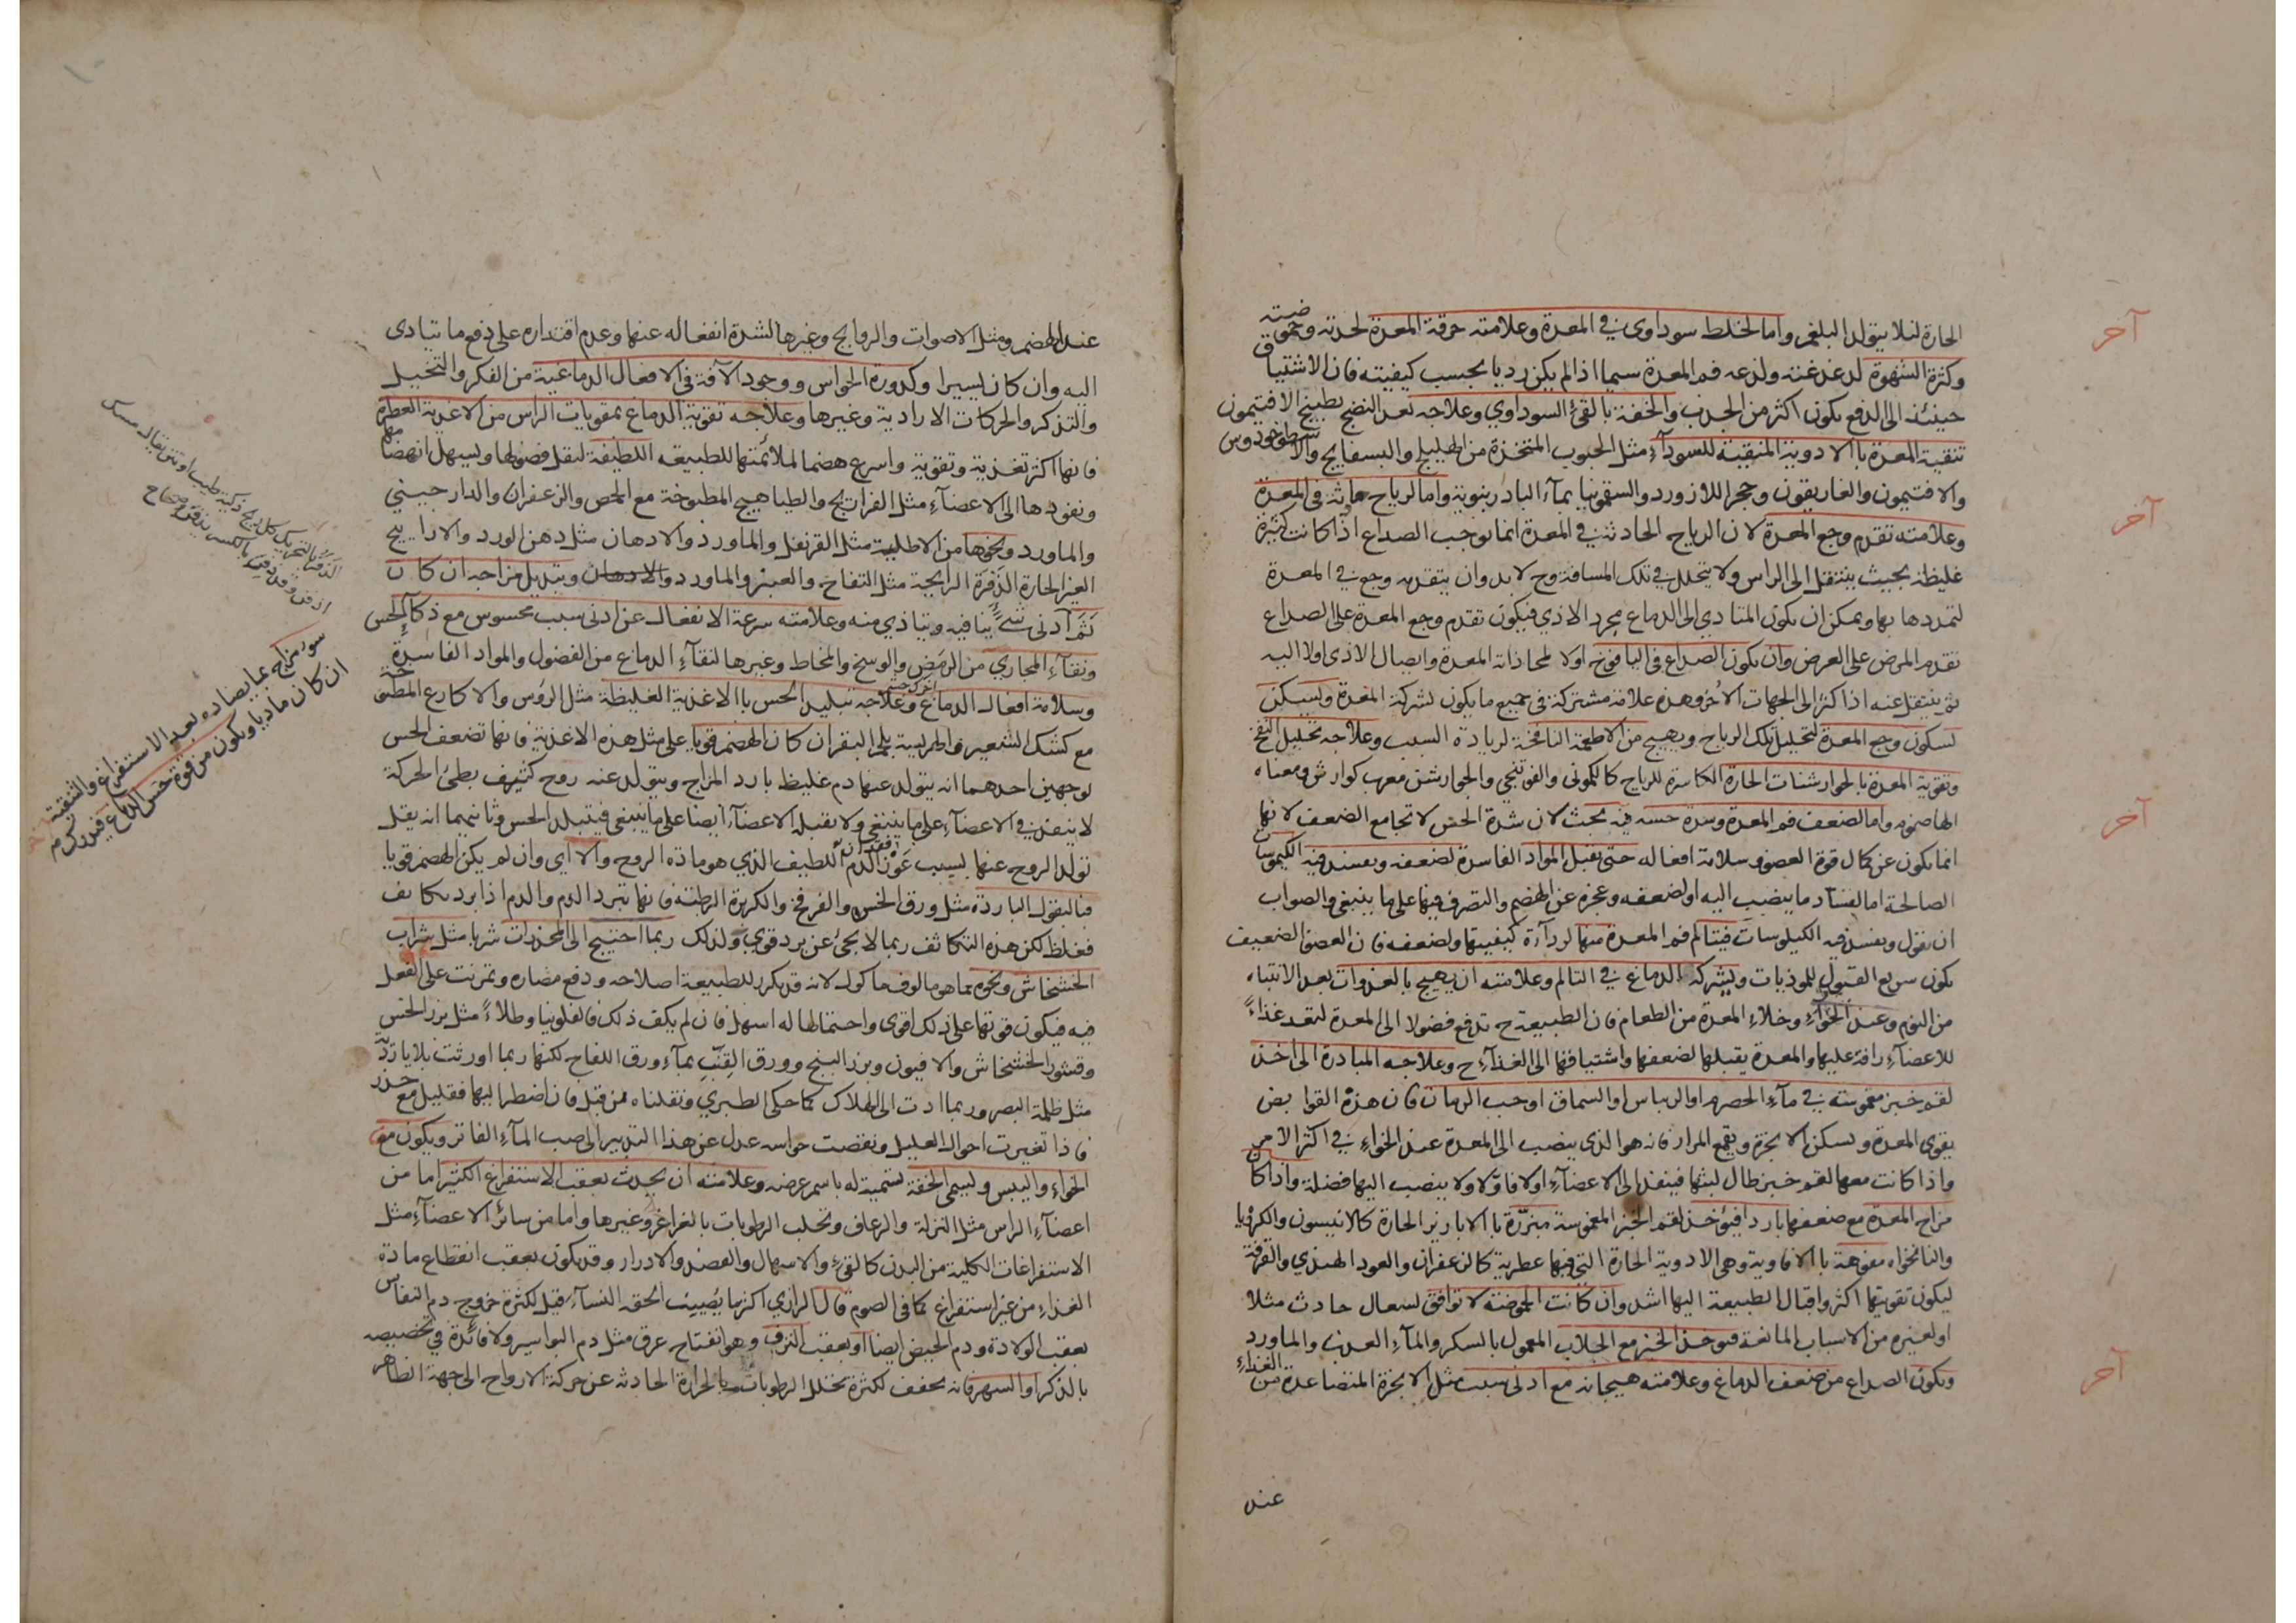 الحارة لئلا يتولد البلغم واما لخلط سوداوى في المعدة وعلامته حرقة المعدة لحدته وحموضته
وكثرة الشهوة لدغدغته ولذعه فم المعدة سيما اذا لم يكن رديا بحسب كيفيته فان الاشتياق
حينئذ الى الدفع يكون اكثر من الجذب والخفة بالقئ السوداوي وعلاجه بعد النضج بطبيخ الافتيمون
تنقية المعدة بالادوية المنقية للسودآء مثل الحبوب المتخذة من الهليلج والبسفايج والاسطوخودوس
والافتيمون والغاريقون وحجر اللازورد والسقمونيا بمآء البادرنبوية واما لرياح حادثة فى المعدة
وعلامته تقدم وجع المعدة لان الرياح الحادثة في المعدة انما توجب الصداع اذا كانت كثيرة
غليظة بحيث ينتقل الى الراس ولا يتحلل في تلك المسافة وح لا بد وان يتقدم وجع في المعدة
لتمددها بها ويمكن ان يكون المتادي الى الدماغ مجرد الاذي فيكون تقدم وجع المعدة على الصداع
تقدم المرض على العرض وان يكون الصداع فى اليافوخ اولا لمحاذاته المعدة وايصال الاذى اولا اليه
ثم ينتقل عنه اذا كثر الى الجهات الاُخر وهذه علامة مشتركة فى جميع ما يكون لشركة المعدة ويسكن
لسكون وجع المعدة لتحليل تلك الرياح ويهيج من الاطعمة النافخة لزيادة السبب وعلاجه تحليل النفخ
وتقوية المعدة بالجوارشنات الحارة الكاسرة للرياح كالكمونى والفوتنجي والجوارشن معرب كوارش ومعناه
الهاضوم واما لضعف فم المعدة وشدة حسه فيه بحث لان شدة الحس لا تجامع الضعف لانها
انما يكون عن كمال قوة العضو وسلامة افعاله حتى يقبل المواد الفاسدة لضعفه ويفسد فيه الكيموسات
الصالحة اما لفساد ما ينصب اليه او لضعفه وعجزه عن الهضم والتصرف فيها على ما ينبغي والصواب
ان يقول ويفسد فيه الكيلوسات فيتالم فم المعدة منها لردآءة كيفيتها ولضعفه فان العضو الضعيف
يكون سريع القبول للموذيات ويشركه الدماغ في التالم وعلامته ان يهيج بالغدوات بعد الانتباه
من النوم وعند الخوآء وخلاء المعدة من الطعام فان الطبيعة ح تدفع فضولا الى المعدة لتعد غذاءً
للاعضآء رافة عليها والمعدة يقبلها لضعفها واشتياقها الى الغذآء ح وعلاجه المبادرة الى اخذ
لقم خبز مغموسة في مآء الحصرم او الريباس او السماق او حب الرمان فان هذه القوابض
يقوى المعدة ويسكن الابخرة ويقمع المرار فانه هو الذى ينصب الى المعدة عند الخواء في اكثر الامر
واذا كانت معها لقم خبز طال لبثها فينفذ الى الاعضآء اولا فاوّلا ولا ينصب اليها فضلة واذا كان
مزاج المعدة مع ضعفها باردا فيؤخذ لقم الخبز المغموسة مبزّرة بالابازير الحارة كالانيسون والكرويا
والنانخواه مفوهة بالافاوية وهى الادوية الحارة التي فيها عطرية كالزعفران والعود الهندي والقرفة
ليكون تقويتها اكثر واقبال الطبيعة اليها اشد وان كانت الحموضة لا توافق لسعال حادث مثلا
او لغيره من الاسباب المانعة فيوخذ الخبز مع الجلاب المعمول بالسكر والمآء العذب والماورد
ويكون الصداع من ضعف الدماغ وعلامته هيجانه مع ادنى سبب مثل الابخرة المتصاعدة من الغذاء
عند
آخر
آخر
آخر
آخر
عند الهضم ومثل الاصوات والروايح وغيرها لشدة انفعاله عنها وعدم اقتداره على دفع ما يتادى
اليه وان كان يسيرا وكدورة الحواس ووجود الآفة فى الافعال الدماغية من الفكر والتخيل
والتذكر والحركات الارادية وغيرها وعلاجه تقوية الدماغ بمقويات الراس من الاغذية العطرة
فانها اكثر تغذية وتقوية واسرع هضما لملائمتها للطبيعة اللطيفة لتقل فضولها ويسهل انهضامها
ونفوذها الى الاعضآء مثل الفراريج والطياهيج المطبوخة مع الحمص والزعفران والدارجيني
والماورد ونحوها من الاطلية مثل القرنفل والماورد والادهان مثل دهن الورد والاراييح
الغير الحارة الذَفِرة الرايحة مثل التفاح والعبنر والماورد والادهان وتبديل مزاجه ان كان
ثَمَّ ادنى شىءٍ ينافيه ويتاذي منه وعلامته سرعة الانفعال عن ادنى سبب محسوس مع ذكآءِ الحس
ونقآء المجاري من الرمَض والوسخ والمخاط وغيرها لنقآء الدماغ من الفضول والمواد الفاسدة
وسلامة افعال الدماغ وعلاجه تبليد الحس بالاغذية الغليظة مثل الرؤس والاكارع المطبوخة
مع كشك الشعير والهريسة بلحم البقر ان كان الهضم قويا على مثل هذه الاغذية فانها تضعف الحس
لوجهين احدهما انه يتولد عنها دم غليظ بارد المزاج ويتولد عنه روح كثيف بطئ الحركة
لا ينفذ في الاعضآء على ما ينبغي ولا يقبله الاعضآء ايضا على ما ينبغى فيتبلد الحس وثانيهما انه يقل
تولد الروح عنها بسبب عَوَز الدم اللطيف الذي هو مادة الروح والا اي وان لم يكن الهضم قويا
فبالبقول الباردة مثل ورق الخس والفرفخ والكزبرة الرطبة فانها تبرد الدم والدم اذا برد تكاثف
فغلظ لكن هذه التكاثف ربما لا يجئ عن برد قوي ولذلك ربما احتيج الى المخدرات شربا مثل شراب
الخشخاش ونحوه مما هو مالوف ماكول لانه قد يكرر للطبيعة اصلاحه ودفع مضاره وتمرنت على الفعل
فيه فيكون قوتها على ذلك اقوى واحتمالها له اسهل فان لم يكف ذلك فالفلونيا وطلاءً مثل بزر الخس
وقشور الخشخاش والافيون وبزر البنج وورق القِنَّب بمآء ورق اللفاح لكنها ربما اورثت بلايا رَدّية
مثل ظلمة البصر وربما ادت الى الهلاك كما حكى الطبري ونقلناه من قبل فان اضطر اليها فقليل مع حذر
فاذا تغيرت احوال العليل ونقصت حواسه عدل عن هذا التدبير الى صب المآء الفاتر ويكون مع
الخواء واليبس ويسمى الخفة تسمية له باسم عرضه وعلامته ان يحدث بعقب الاستفراغ الكثير اما من
اعضآء الراس مثل النزلة والرعاف وتحلب الرطوبات بالغراغر وغيرها واما من سائر الاعضآء مثل
الاستفراغات الكلية من البدن كالقئ والاسهال والفصد والادرار وقد يكون بعقب انقطاع مادة
الغذاء من غير استفراغ كما فى الصوم قال الرازي اكثر ما يُصِيب الخفة النسآء قيل لكثرة خروج دم النفاس
بعقب الولادة ودم الحيض ايضا او بعقب النزف وهو انفتاح عرق مثل دم البواسير ولا فائدة في تخصيصه
بالذكر او السهر فانه يجفف لكثرة تحلل الرطوبات بالحرارة الحادثة عن حركة الارواح الى جهة الظاهر
الذفر بالتحريك كل ريح ذكية من طيب او نتن يقال مسك
سوء مزاج بما يضاده بعد الاستفراغ والتنقية
ان كان ماديا ويكون من قوة حس الدماغ